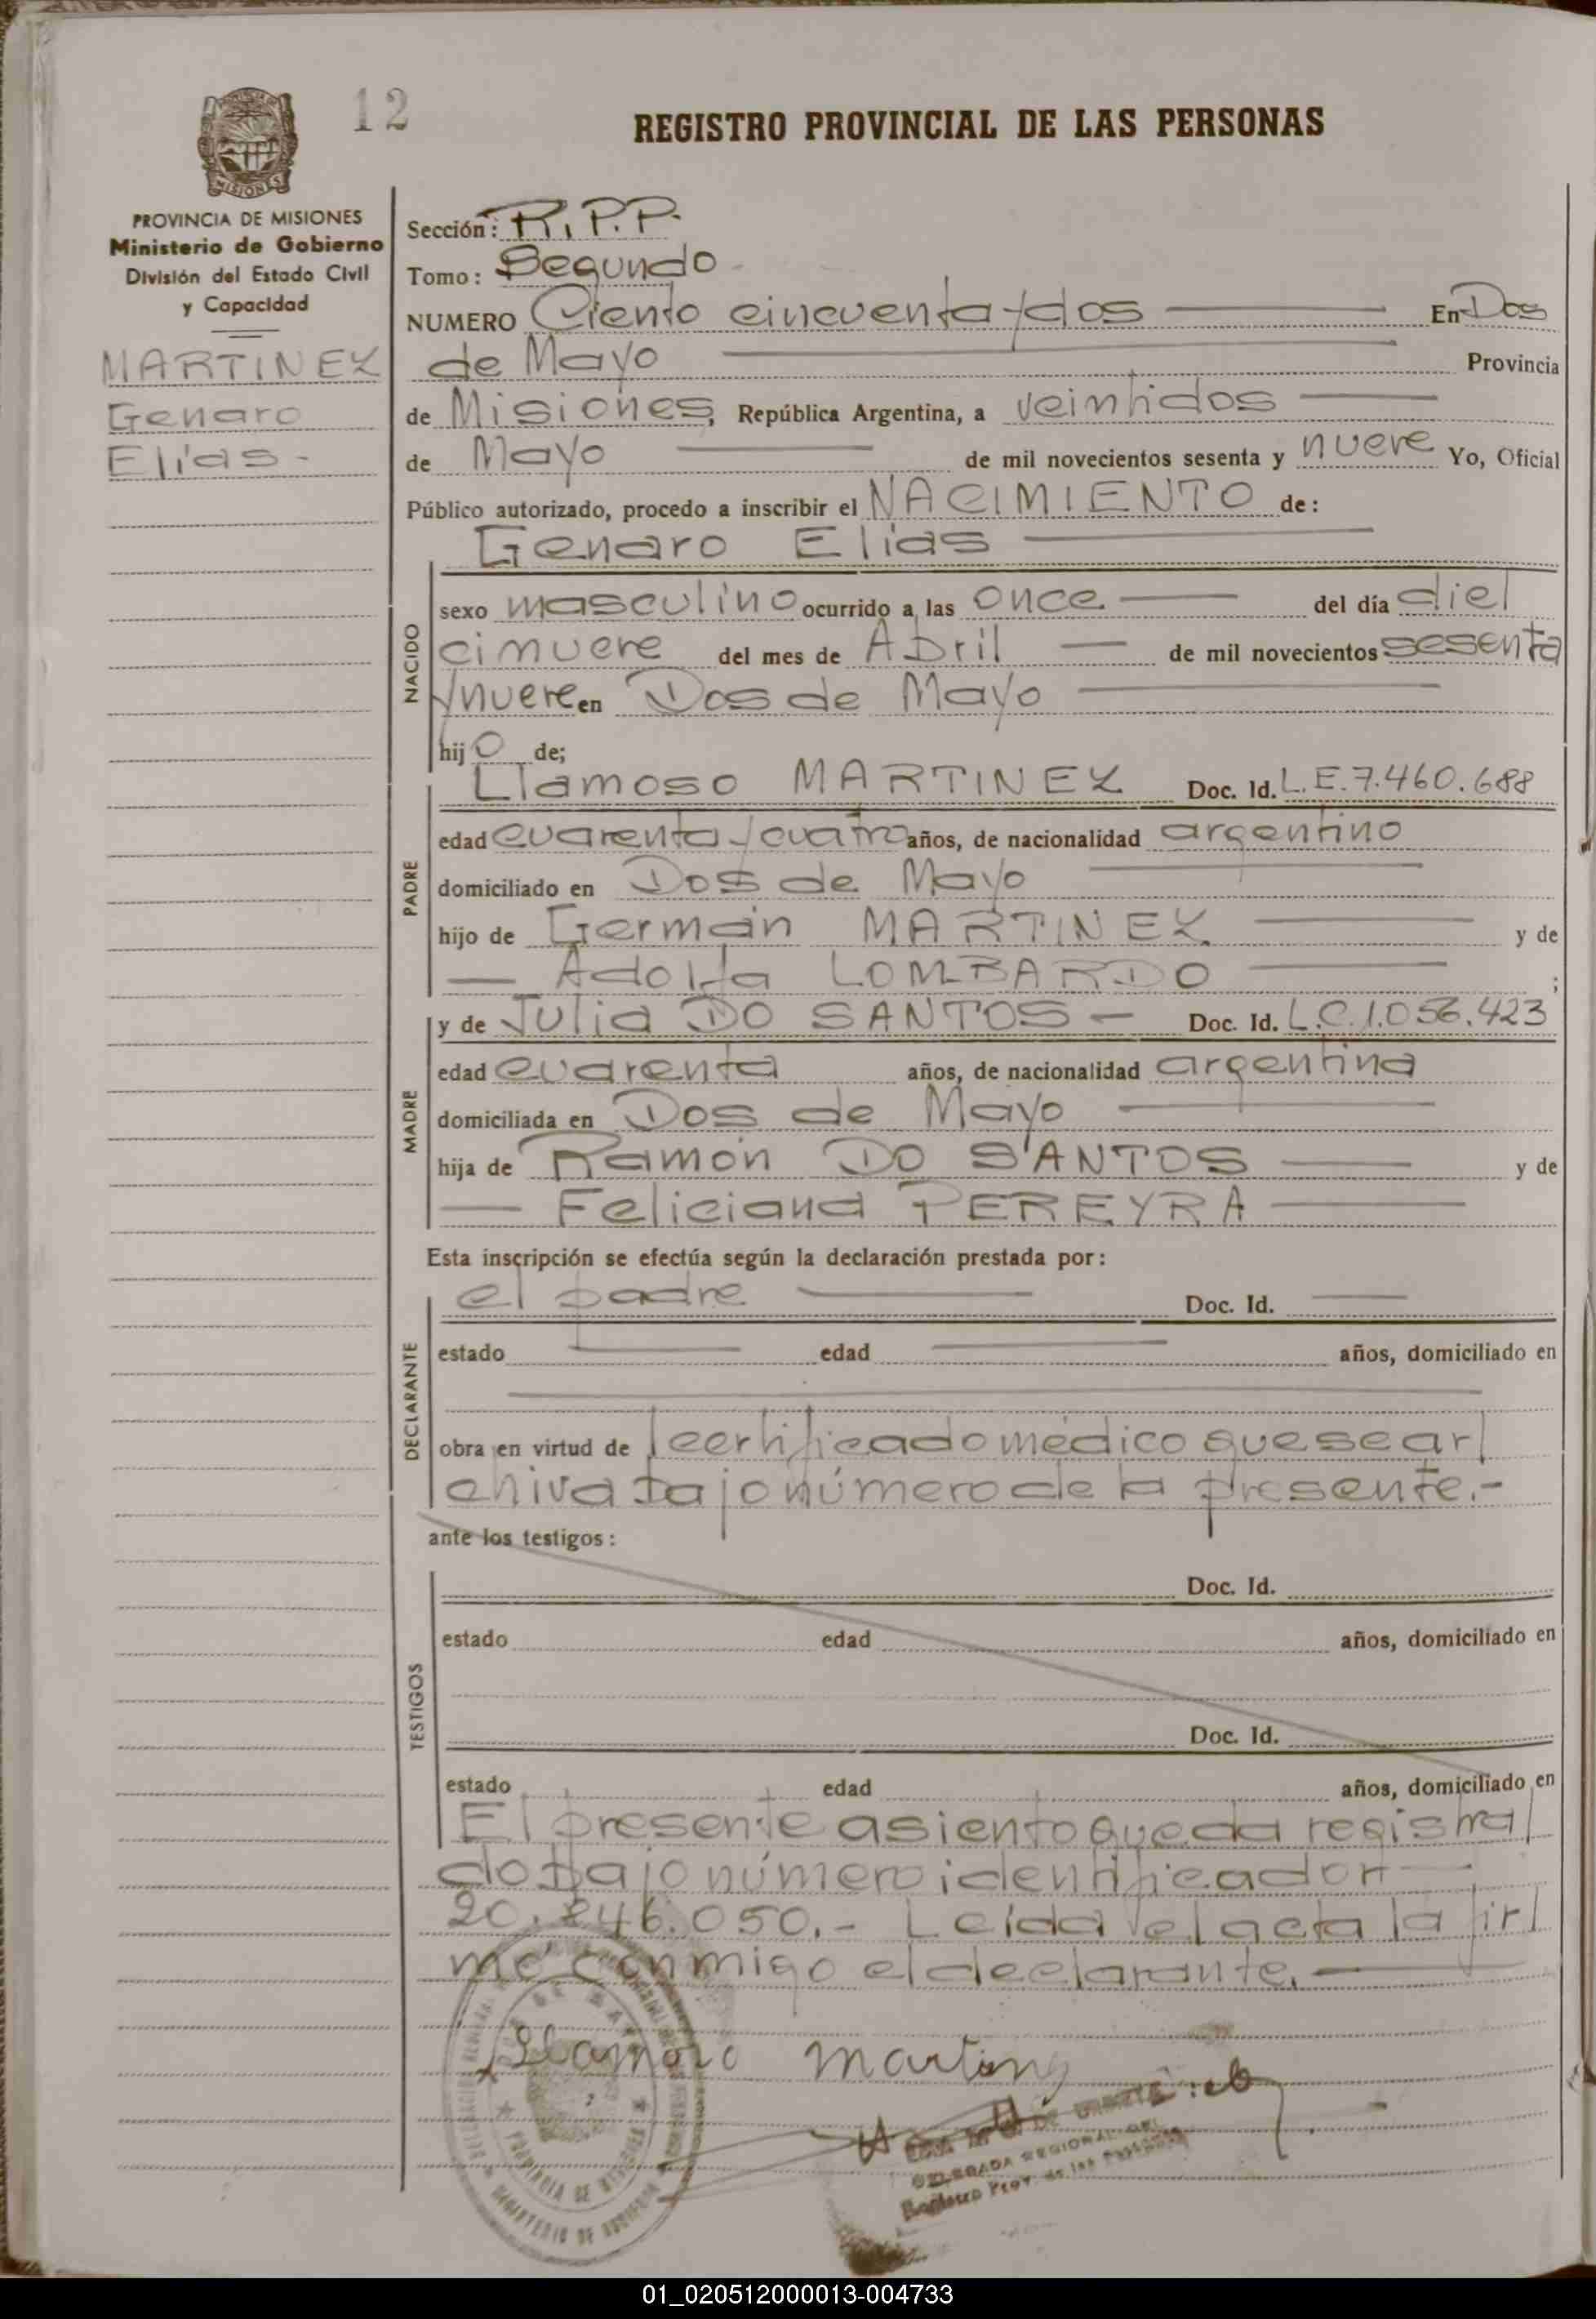 12
REGISTRO PROVINCIAL DE LAS PERSONAS
MISIONES
PROVINCIA DE MISIONES
Ministerio de Gobierno
División del Estado Civil
y Capacidad
MARTINEZ
Genaro
Elías -
Sección: R.P.P.
Tomo: Segundo
NUMERO Ciento cincuenta y dos En Dos
de Mayo Provincia
de Misiones, República Argentina, a veintidos
de Mayo de mil novecientos sesenta y nueve Yo, Oficial
Público autorizado, procedo a inscribir el NACIMIENTO de:
Genaro Elías
NACIDO
sexo masculino ocurrido a las once del día diel
cinueve del mes de Abril de mil novecientos sesenta
y nueve en Dos de Mayo
hijo de;
PADRE
Llamoso MARTINEZ Doc. Id. L.E.7.460.688
edad cuarenta y cuatro años, de nacionalidad argentino
domiciliado en Dos de Mayo
hijo de Germán MARTINEZ y de
— Adolfa LOMBARDO ;
MADRE
y de Julia DO SANTOS — Doc. Id. L.C.1.056.423
edad cuarenta años, de nacionalidad argentina
domiciliada en Dos de Mayo
hija de Ramón DO SANTOS y de
— Feliciana PEREYRA
Esta inscripción se efectúa según la declaración prestada por:
DECLARANTE
el padre Doc. Id.
estado edad años, domiciliado en
obra en virtud de certificado médico que se ar
chiva bajo número de la presente.-
ante los testigos:
TESTIGOS
Doc. Id.
estado edad años, domiciliado en
Doc. Id.
estado edad años, domiciliado en
El presente asiento queda registra
do bajo número identificador
20.846.050.- Leída el acta la fir
mó conmigo el declarante.
Llamoso Martinez
DELEGADA REGIONAL DEL
Registro Prov. de las Personas
PROVINCIA DE MISIONES
MINISTERIO DE GOBIERNO
01_020512000013-004733